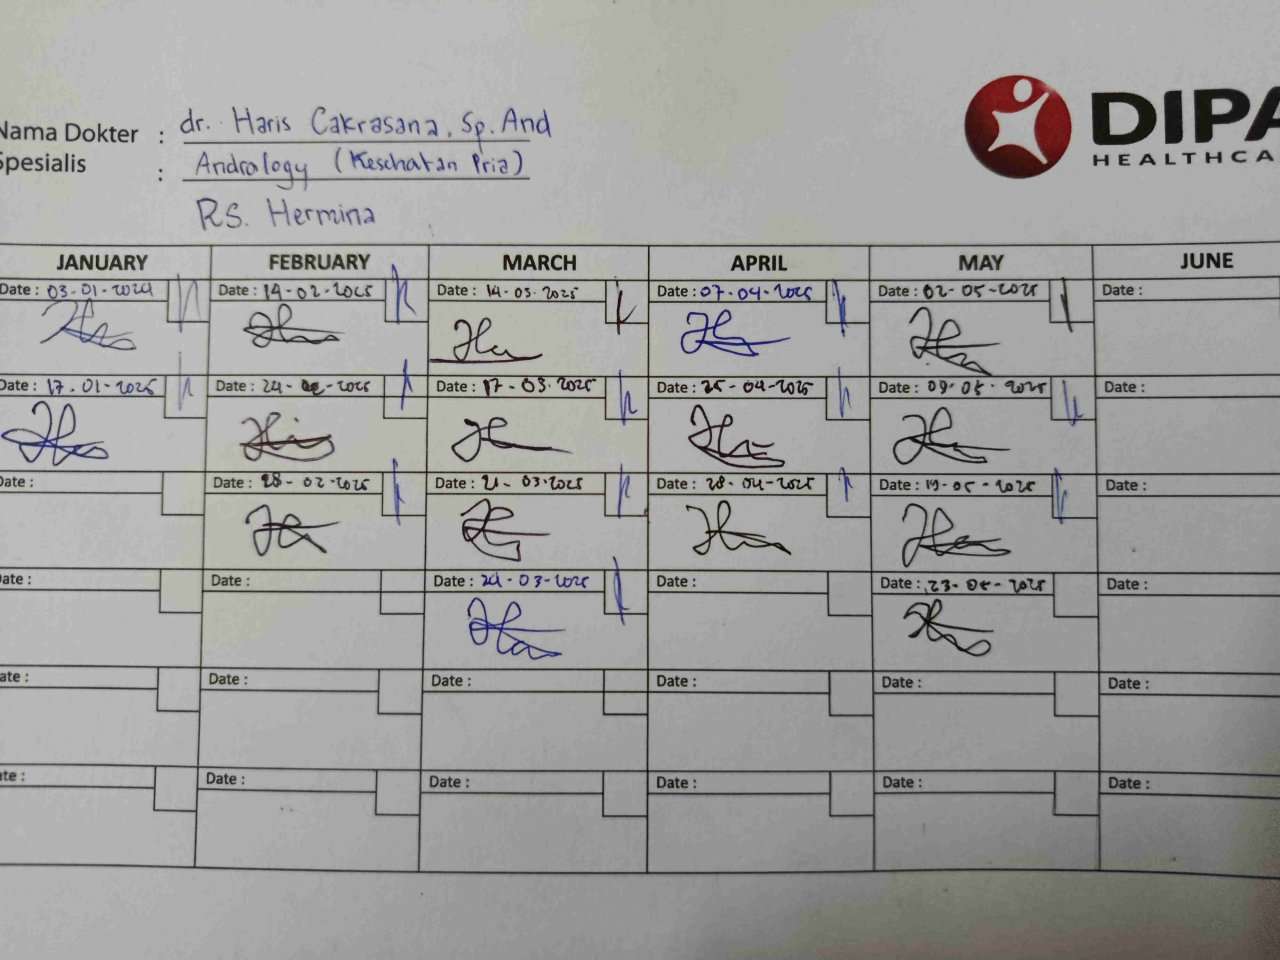 Nama Dokter : dr. Haris Cakrasana, Sp. And
Spesialis : Andralogy (Kesehatan Pria)
RS. Hermina
DIPA
HEALTHCA
JANUARY FEBRUARY MARCH APRIL MAY JUNE
Date : 03-01-2024 Date : 14-02-2025 Date : 14-03-2025 Date : 07-04-2025 Date : 02-05-2025 Date :
Date : 17-01-2025 Date : 24- -2025 Date : 17-03-2025 Date : 25-04-2025 Date : 09-05-2025 Date :
Date : Date : 28-02-2025 Date : 21-03-2025 Date : 28-04-2025 Date : 19-05-2025 Date :
Date : Date : Date : 24-03-2025 Date : Date : 23-05-2025
ate : Date : Date : Date : Date : Date :
ate : Date : Date : Date : Date : Date :